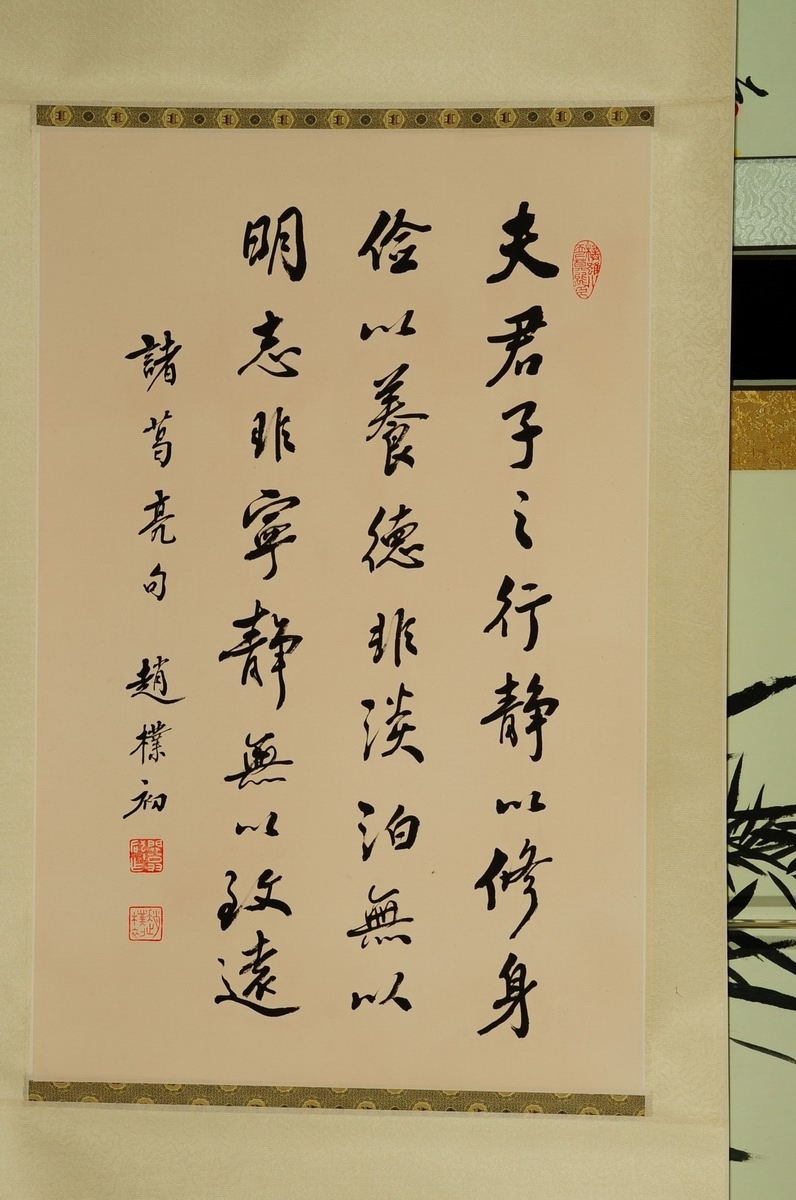 夫君子之行静以修身
俭以養德非淡泊無以
明志非寧静無以致遠
諸葛亮句 趙樸初
趙樸初